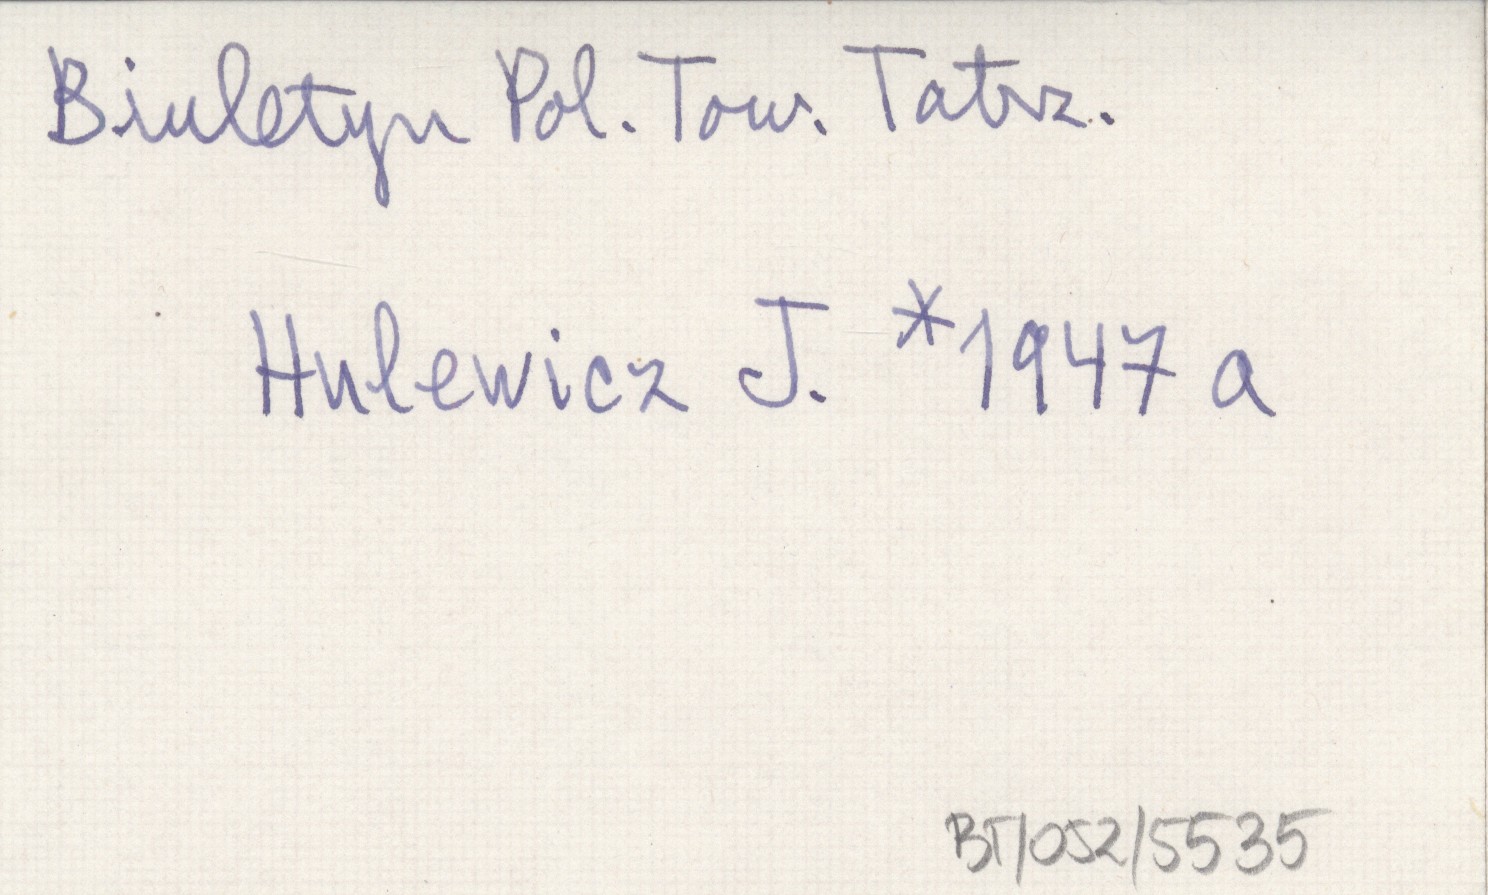 Biuletyn Pol. Tow. Tatrz.
Hulewicz J. *1947 a
BT/052/5535